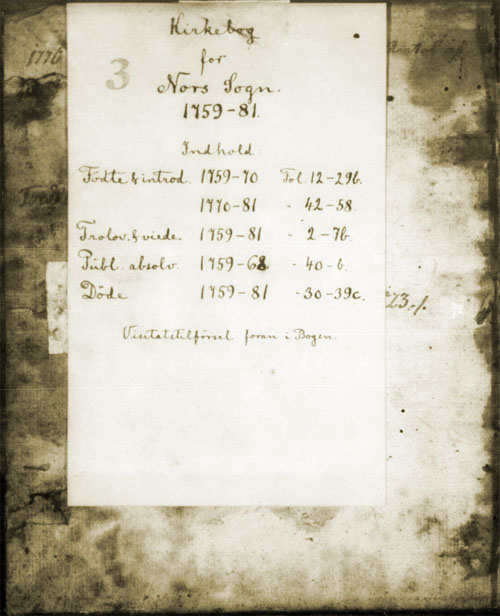 Kirkebog
for
3
Nors Sogn.
1759-81.
Indhold.
Fødte & introd. 1759-70 Fol. 12-29b.
1770-81 " 42-58.
Trolov. & viede. 1759-81 " 2-7b.
Publ. absolv. 1759-68 " 40-6.
Døde 1759-81 " 30-39c.
Visitatstilförsel foran i Bogen.
1776